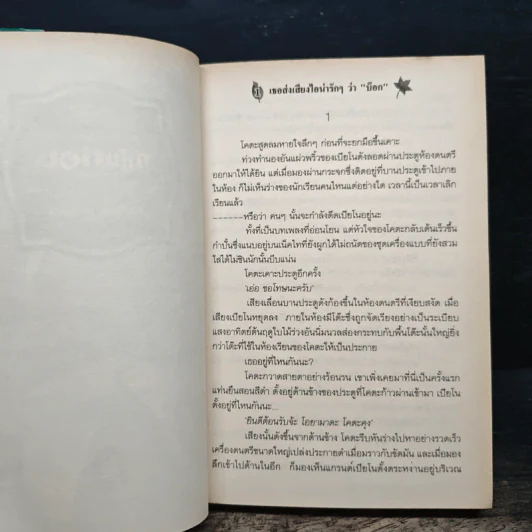 ๑ เธอส่งเสียงไอน่ารักๆ ว่า "บ๊อก"
1
โคตะสูดลมหายใจลึกๆ ก่อนที่จะยกมือขึ้นเคาะ
ท่วงทำนองอันแผ่วพริ้วของเปียโนดังลอดผ่านประตูห้องดนตรี
ออกมาให้ได้ยิน แต่เมื่อมองผ่านกระจกซึ่งติดอยู่ที่บานประตูเข้าไปภาย
ในห้อง ก็ไม่เห็นร่างของนักเรียนคนไหนแต่อย่างใด เวลานี้เป็นเวลาเลิก
เรียนแล้ว
------หรือว่า คนๆ นั้นจะกำลังดีดเปียโนอยู่นะ
ทั้งที่เป็นบทเพลงที่อ่อนโยน แต่หัวใจของโคตะกลับเต้นเร็วขึ้น
กำปั้นซึ่งแนบอยู่บนเน็คไทที่ยังผูกได้ไม่ถนัดของชุดเครื่องแบบที่ยังสวม
ใส่ได้ไม่ชินนักนั้นบีบแน่น
โคตะเคาะประตูอีกครั้ง
'เอ่อ ขอโทษนะครับ'
เสียงเลื่อนบานประตูดังก้องขึ้นในห้องดนตรีที่เงียบสงัด เมื่อ
เสียงเปียโนหยุดลง ภายในห้องมีโต๊ะซึ่งถูกจัดเรียงอย่างเป็นระเบียบ
แสงอาทิตย์ต้นฤดูใบไม้ร่วงอันนิ่มนวลส่องกระทบกับพื้นโต๊ะนั้นใหญ่ยิ่ง
กว่าโต๊ะที่ใช้ในห้องเรียนของโคตะให้เป็นประกาย
เธออยู่ที่ไหนกันนะ?
โคตะกวาดสายตาอย่างร้อนรน เขาเพิ่งเคยมาที่นี่เป็นครั้งแรก
แท่นยืนสอนสีดำ ตั้งอยู่ด้านข้างของประตูที่โคตะก้าวผ่านเข้ามา เปียโน
ตั้งอยู่ที่ไหนกันนะ...
'ยินดีต้อนรับจ้ะ โอยามาดะ โคตะคุง'
เสียงนั้นดังขึ้นจากด้านข้าง โคตะรีบหันร่างไปหาอย่างรวดเร็ว
เครื่องดนตรีขนาดใหญ่เปล่งประกายดำเมื่อมราวกับขัดมัน และเมื่อมอง
ลึกเข้าไปด้านในอีก ก็มองเห็นแกรนด์เปียโนตั้งตระหง่านอยู่บริเวณ